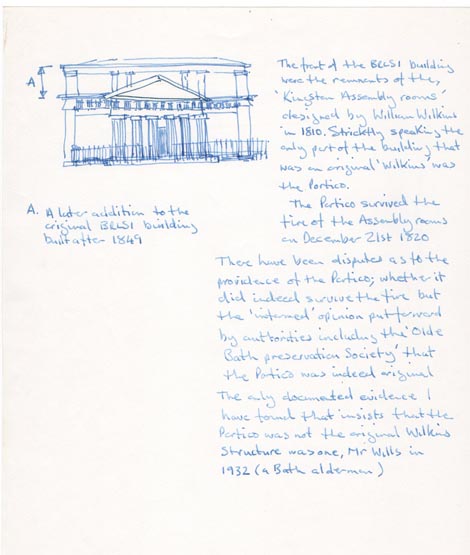 A
The front of the BRLSI building
were the remnants of the,
'Kingston Assembly rooms'
designed by William Wilkins
in 1810. Stricktly speaking the
only part of the building that
was an original 'Wilkins' was
the Portico.
The Portico survived the
fire of the Assembly rooms
on December 21st 1820
A. A later addition to the
original BRLSI building
built after 1849
There have been disputes as to the
providence of the Portico; whether it
did indeed survive the fire but
the 'informed' opinion put forward
by authorities including the 'Olde
Bath preservation Society' that
the Portico was indeed original
The only documented evidence I
have found that insists that the
Portico was not the original Wilkins
structure was one, Mr Wills in
1932 (a Bath alderman)